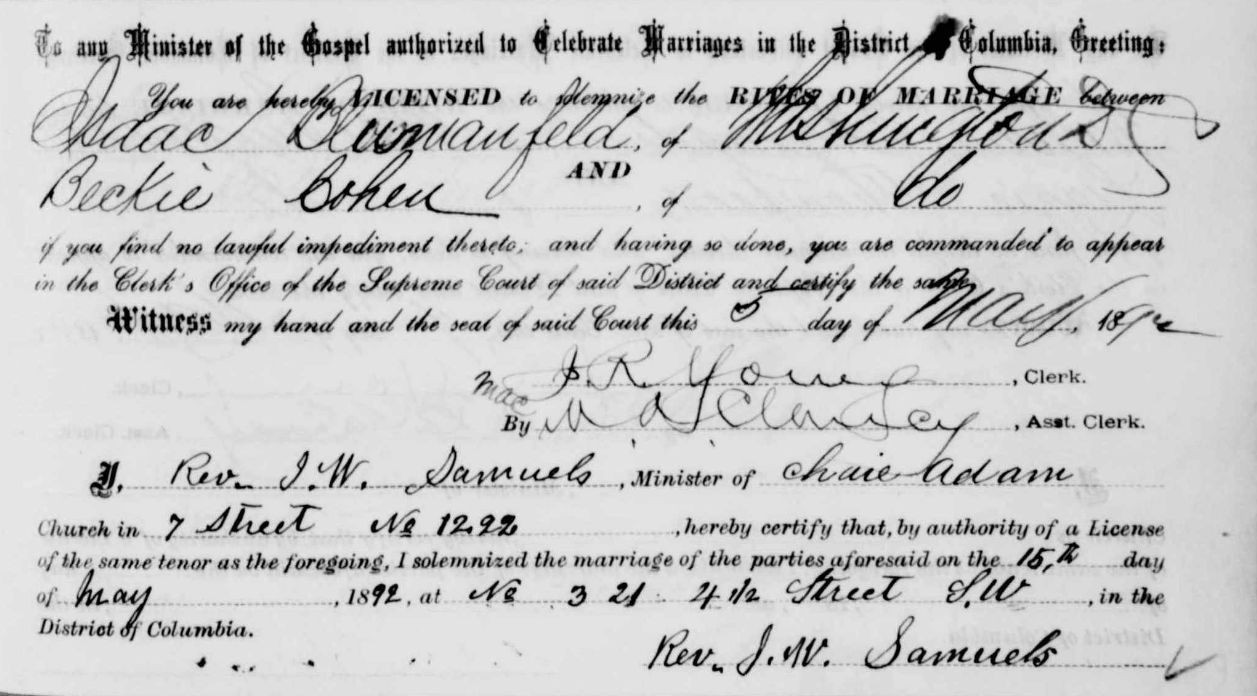 To any Minister of the Gospel authorized to Celebrate Marriages in the District of Columbia, Greeting:
You are hereby LICENSED to solemnize the RITES OF MARRIAGE between
Isaac Blumanfeld, of Washington D C
AND
Beckie Cohen, of do
if you find no lawful impediment thereto; and having so done, you are commanded to appear
in the Clerk's Office of the Supreme Court of said District and certify the same.
Witness my hand and the seal of said Court this 5 day of May, 1892
J. R. Young, Clerk.
Mac
By M A Clancy, Asst. Clerk.
I, Rev. J. W. Samuels, Minister of Chaie Adam
Church in 7 Street No 1292, hereby certify that, by authority of a License
of the same tenor as the foregoing, I solemnized the marriage of the parties aforesaid on the 15,th day
of May, 1892, at No 321 4 1/2 Street S.W, in the
District of Columbia.
Rev. J. W. Samuels